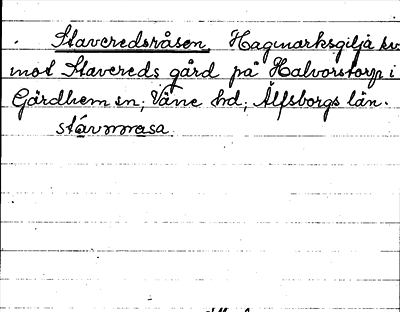 Stavcredsråsen. Hagmarksgilja sv
mot Stavereds gård på Halvorstorp i
Gärdhem sn, Väne hd, Älfsborgs län.
stávmrasa